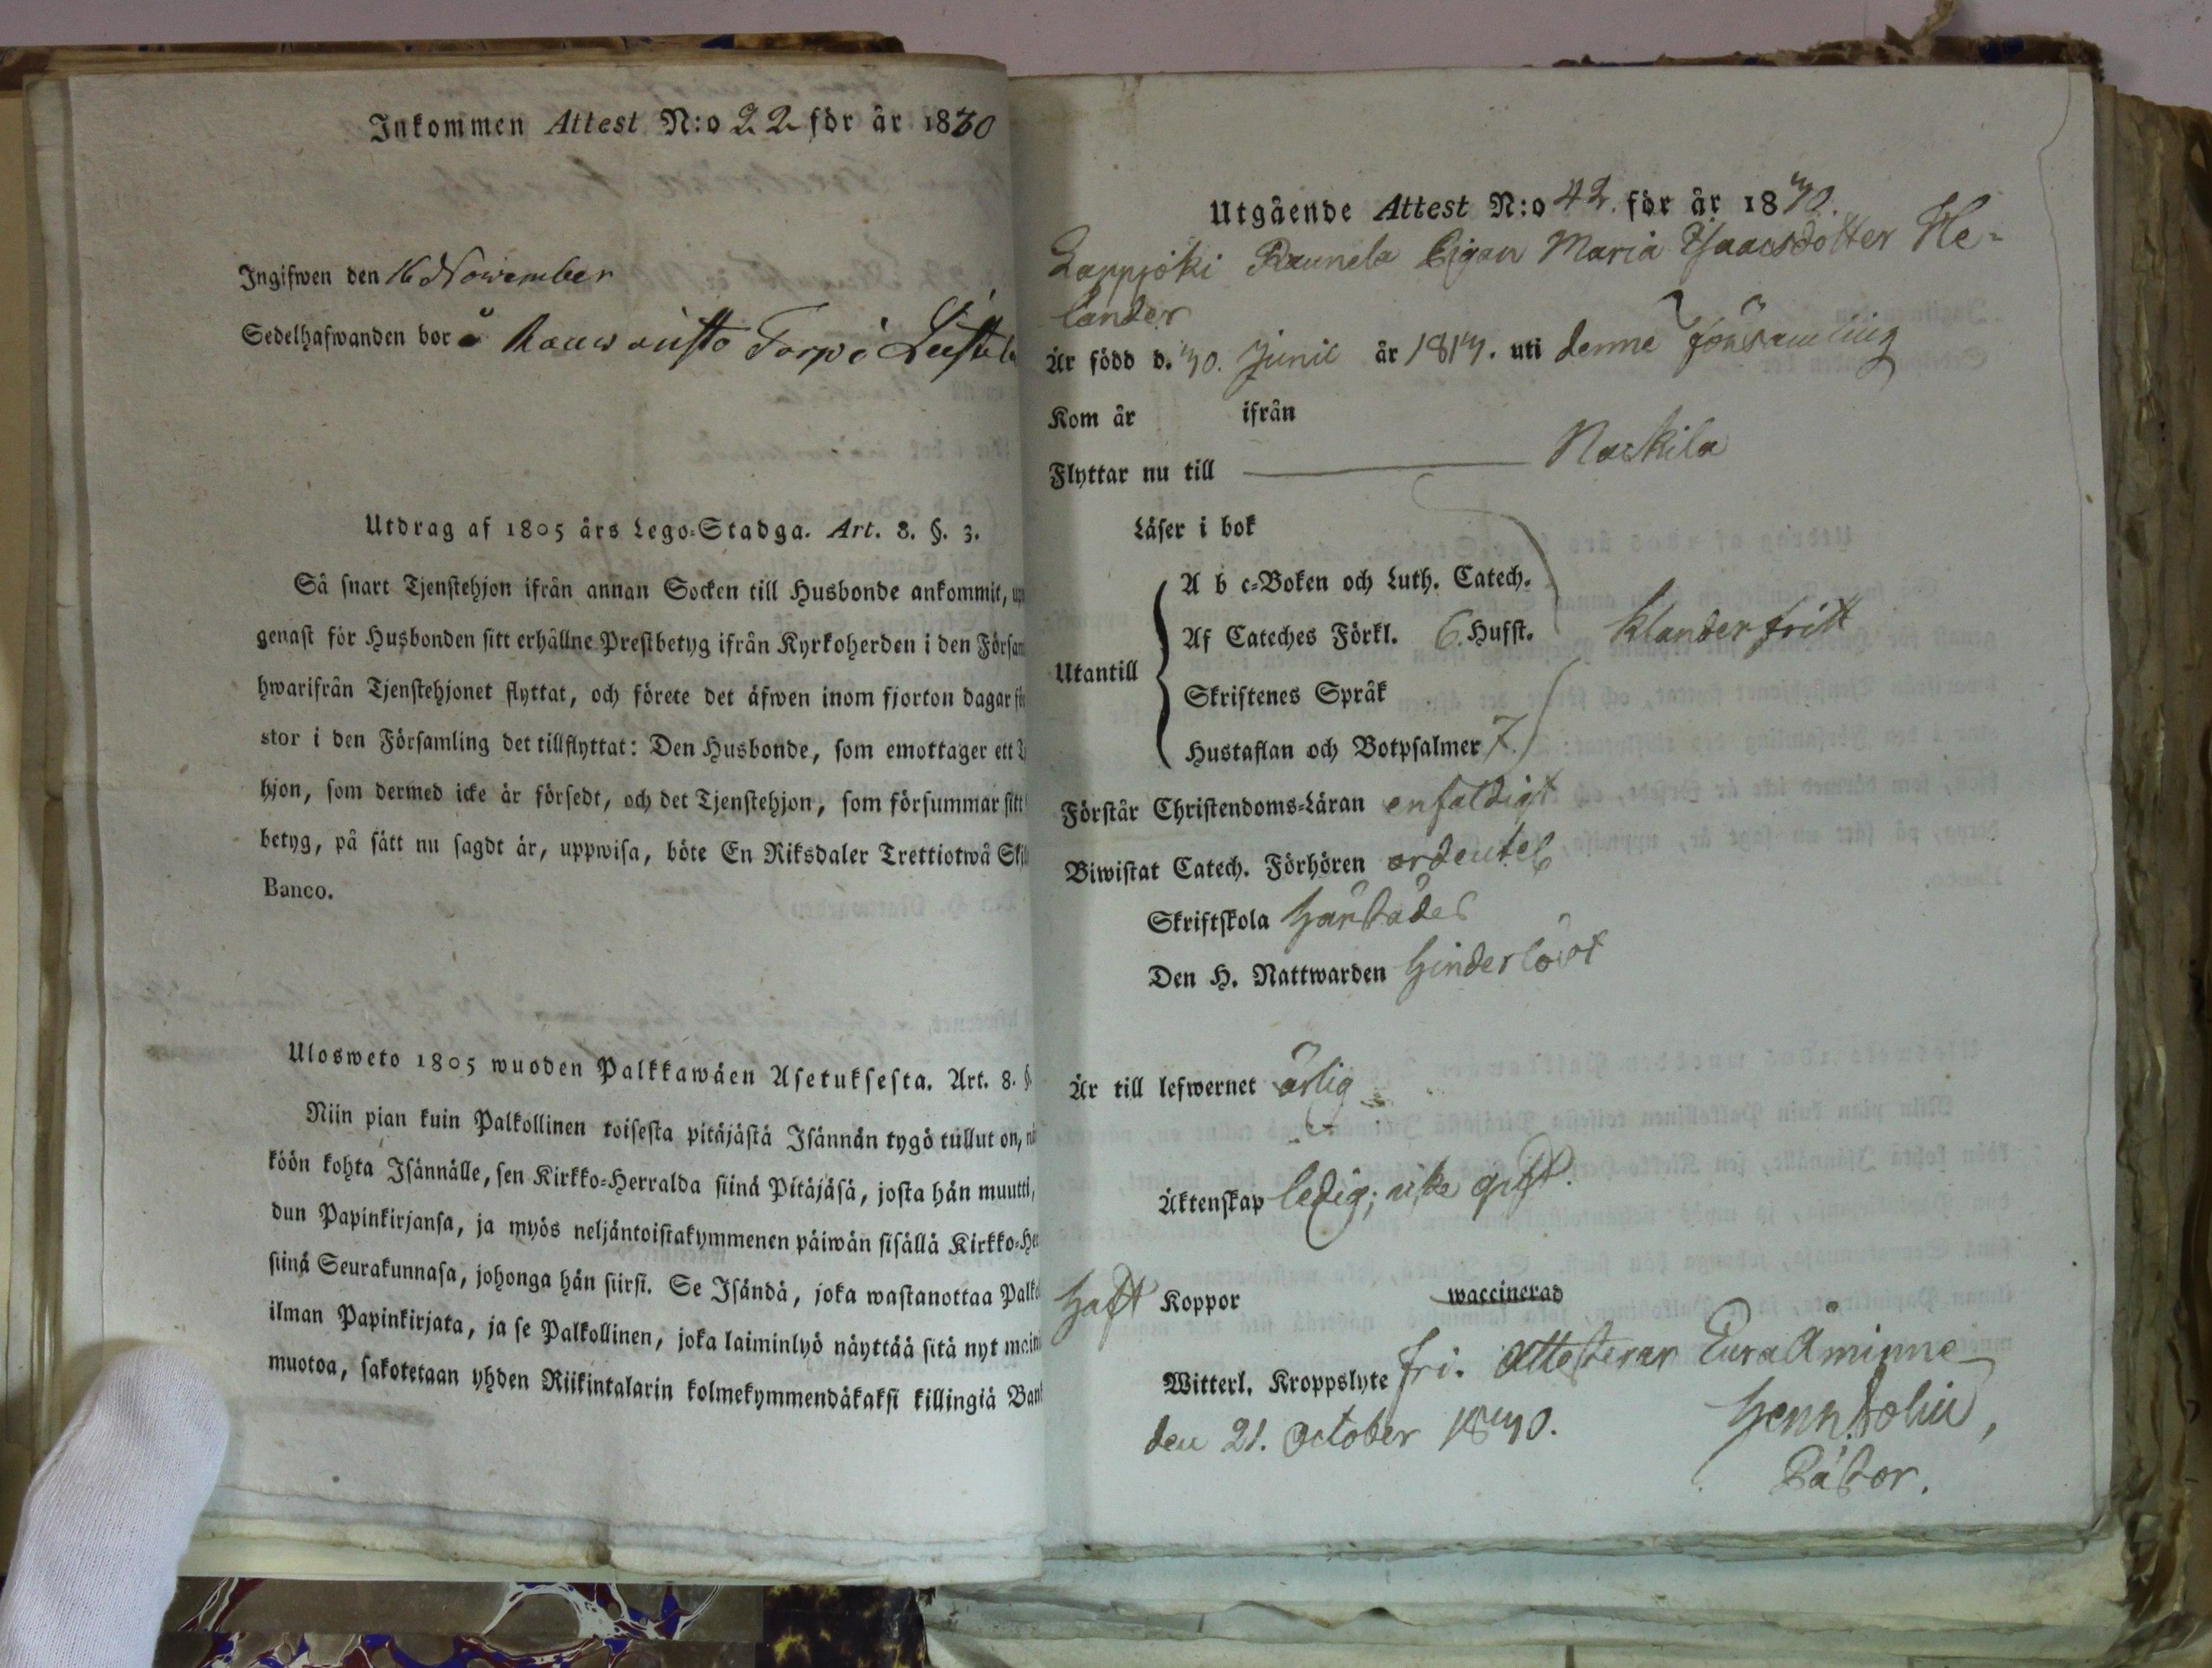 Inkommen Attest N:o 22 för år 1830
Ingifwen den 16 November
Sedelhafwanden bor å Torp
Utdrag af 1805 års Lego-Stadga. Art. 8. §. 3.
Så snart Tjenstehjon ifrån annan Socken till Husbonde ankommit,
genast för Husbonden sitt erhållne Prestbetyg ifrån Kyrkoherden i den
hwarifrån Tjenstehjonet flyttat, och förete det äfwen inom fjorton dagar
stor i den Församling det tillflyttat: Den Husbonde, som emottager ett
hjon, som dermed icke är försedt, och det Tjenstehjon, som försummar sitt
betyg, på sätt nu sagdt är, uppwisa, böte En Riksdaler Trettiotwå
Banco.
Ulosweto 1805 wuoden Palkkawäen Asetuksesta. Art. 8.
Niin pian kuin Palkollinen toisesta pitäjästä Isännän tygö tullut on,
köön kohta Isännälle, sen Kirkko-Herralda siinä Pitäjäsä, josta hän muutti,
dun Papinkirjansa, ja myös neljäntoistakymmenen päiwän sisällä Kirkko-
siinä Seurakunnasa, johonga hän siirsi. Se Isändä, joka wastanottaa
ilman Papinkirjata, ja se Palkollinen, joka laiminlyö näyttää sitä nyt
muotoa, sakotetaan yhden Riikintalarin kolmekymmendäkaksi killingiä
Utgående Attest N:o 42. för år 1830.
Lappjoki Raunela Pigan Maria Isaacsdotter He-
lander
Är född d. 30. Junii år 1813. uti denne församling
Kom år ifrån
Flyttar nu till Nackila
Läser i bok
A b c-Boken och Luth. Catech.
Af Cateches Förkl. 6. Hufst. klanderfritt
Utantill
Skriftenes Språk
Hustaflan och Botpsalmer 7.
Förstår Christendoms-Läran enfaldigt
Biwistat Catech. Förhören ordentel.
Skriftskola härstädes
Den H. Nattwarden hinderlöst
Är till lefwernet ärlig
Äktenskap ledig; icke gift.
haft Koppor waccinerad
Witterl. Kroppslyte fri. Attesterar Eura Åminne
den 21. October 1830.
Pastor.